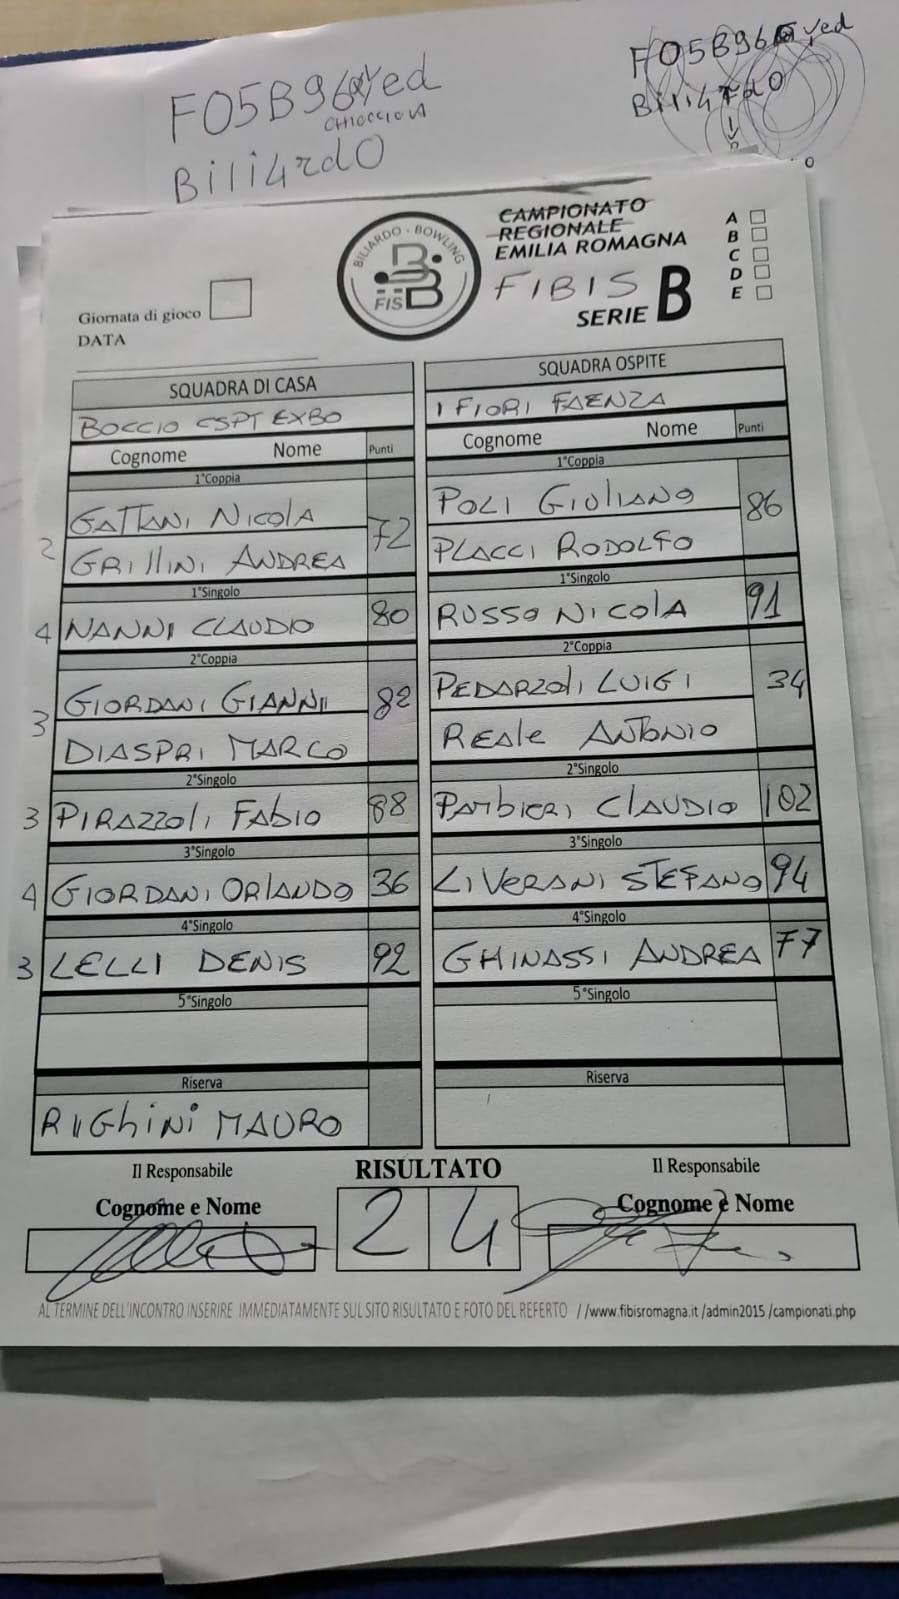 FO5B96 yed
CHIOCCIOLA
Bili4rdO
FO5B96 yed
Bili4rdO
CAMPIONATO
REGIONALE
EMILIA ROMAGNA
FIBIS
SERIE B
A
B
C
D
E
BILIARDO - BOWLING
FISBB
Giornata di gioco
DATA
SQUADRA DI CASA
BOCCIO CSPT EXBO
Cognome Nome Punti
1°Coppia
2 GATTANI NICOLA 72
GRILLINI ANDREA
1°Singolo
4 NANNI CLAUDIO 80
2°Coppia
3 GIORDANI GIANNI 82
DIASPRI MARCO
2°Singolo
3 PIRAZZOLI FABIO 88
3°Singolo
4 GIORDANI ORLANDO 36
4°Singolo
3 LELLI DENIS 92
5°Singolo
Riserva
RIGHINI MAURO
SQUADRA OSPITE
I FIORI FAENZA
Cognome Nome Punti
1°Coppia
POLI GIULIANO 86
PLACCI RODOLFO
1°Singolo
RUSSO NICOLA 91
2°Coppia
PEDARZOLI LUIGI 34
REALE ANTONIO
2°Singolo
CLAUDIO 102
3°Singolo
LIVERANI STEFANO 94
4°Singolo
GHINASSI ANDREA 77
5°Singolo
Riserva
Il Responsabile
Cognome e Nome
RISULTATO
2 4
Il Responsabile
Cognome e Nome
AL TERMINE DELL'INCONTRO INSERIRE IMMEDIATAMENTE SUL SITO RISULTATO E FOTO DEL REFERTO //www.fibisromagna.it/admin2015/campionati.php